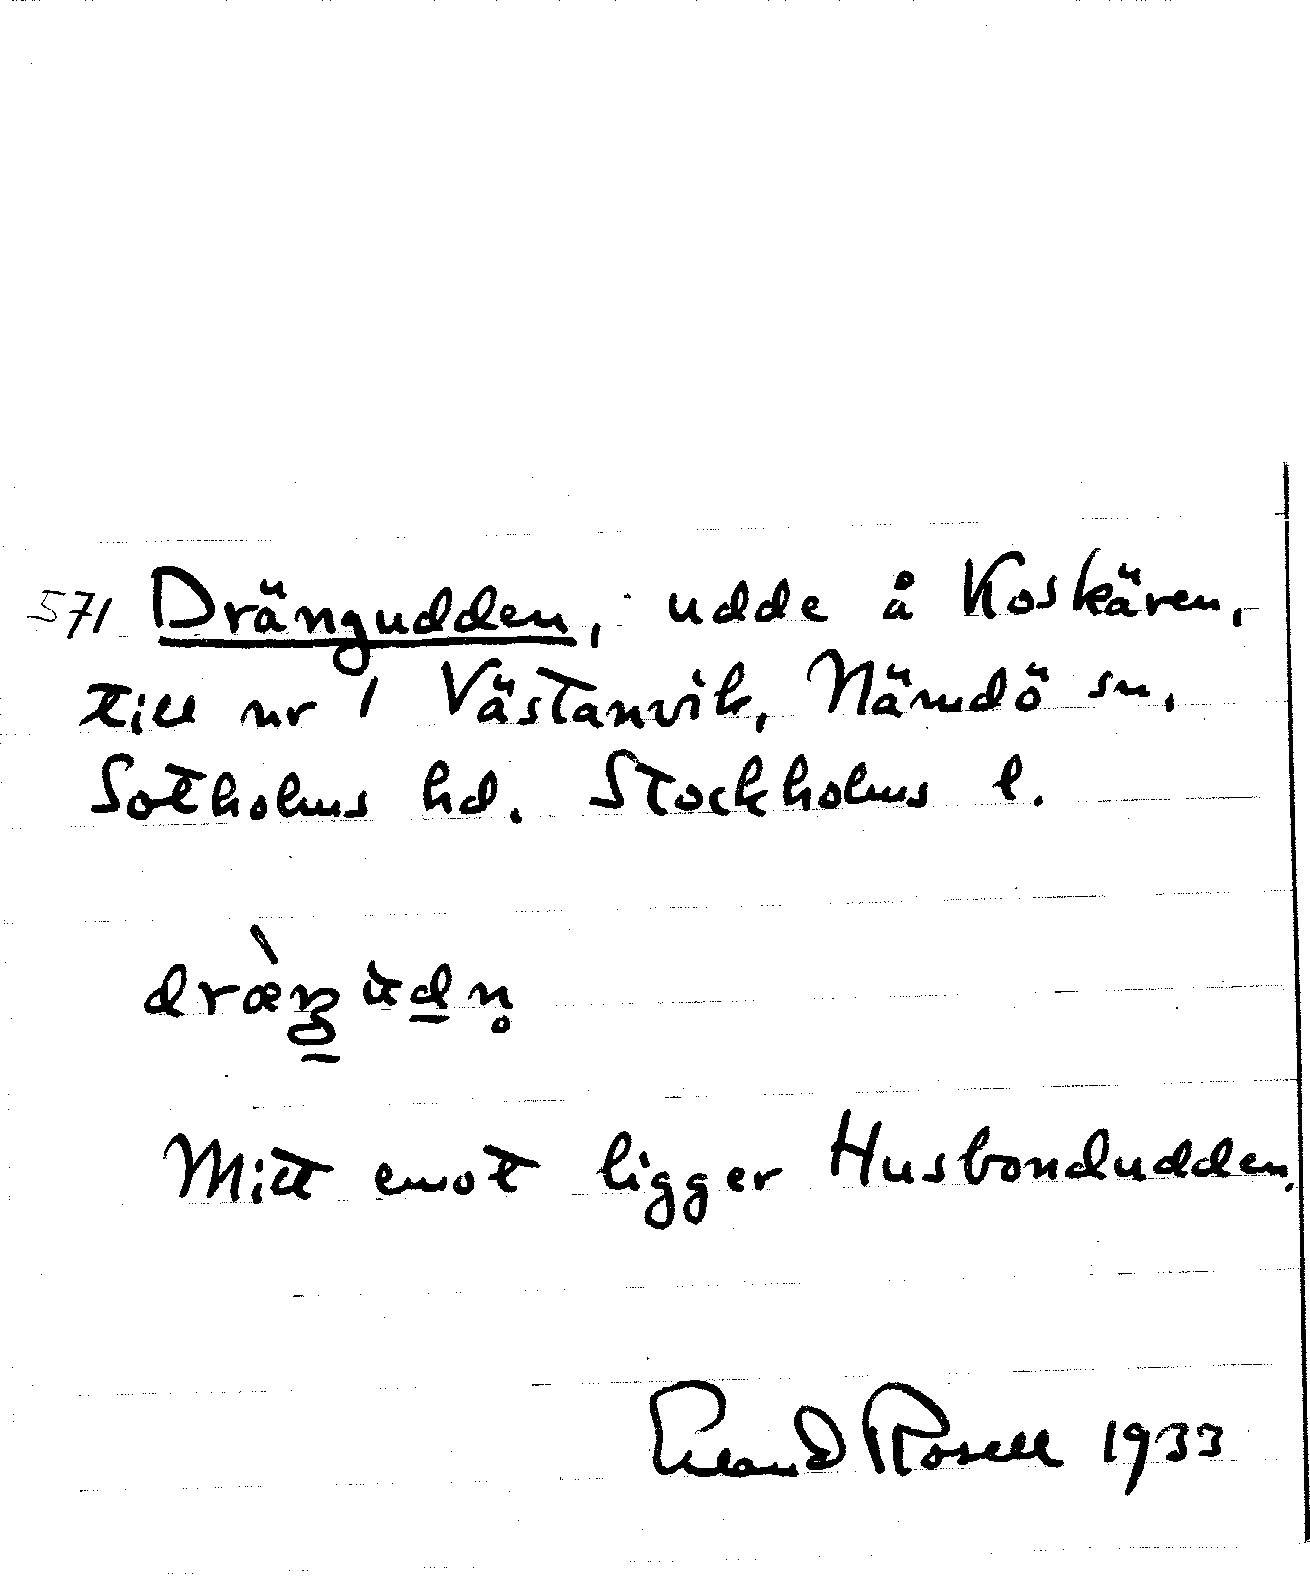 571 Drängudden, udde å Koskären,
till nr 1 Västanvik, Nämdö sn,
Sotholms hd. Stockholms l.
Mitt emot ligger Husbondudden.
Erland Rosell 1933